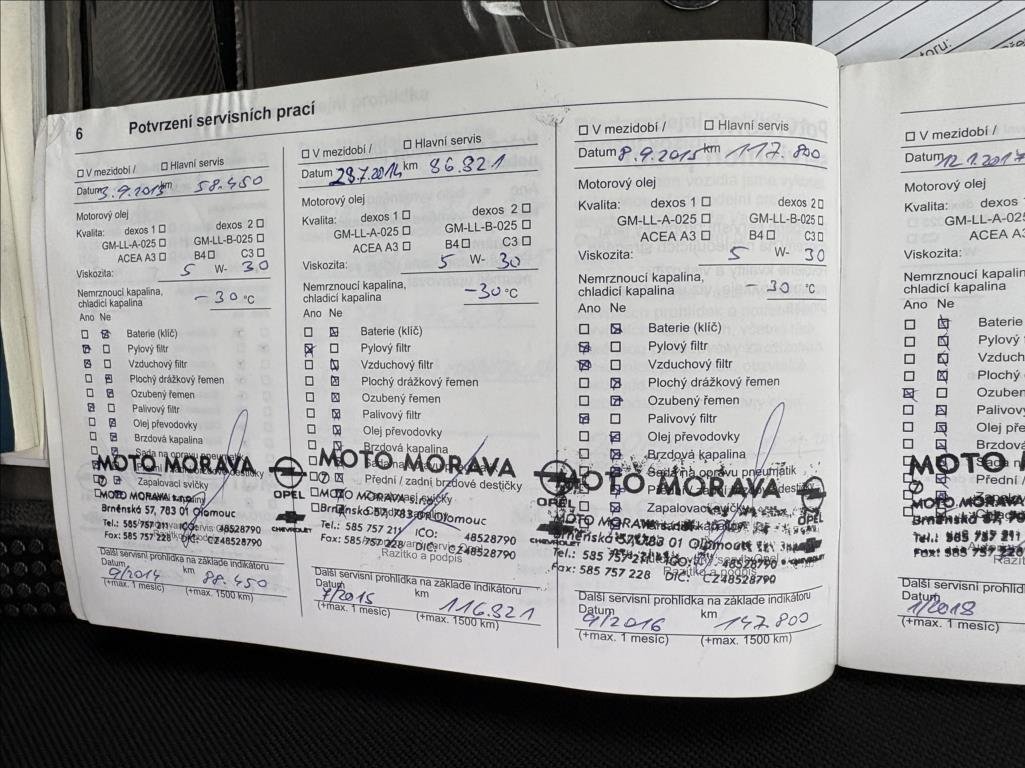 6 Potvrzení servisních prací
☐ V mezidobí / ☐ Hlavní servis
Datum 3.9.2013 km 58.450
Motorový olej
Kvalita: dexos 1 ☐ dexos 2 ☐
GM-LL-A-025 ☐ GM-LL-B-025 ☐
ACEA A3 ☐ B4 ☐ C3 ☐
Viskozita: 5 W- 30
Nemrznoucí kapalina,
chladicí kapalina -30 °C
Ano Ne
☐ ☒ Baterie (klíč)
☒ ☐ Pylový filtr
☒ ☐ Vzduchový filtr
☐ ☒ Plochý drážkový řemen
☐ ☒ Ozubený řemen
☒ ☐ Palivový filtr
☐ ☒ Olej převodovky
☐ ☒ Brzdová kapalina
Sada na opravu pneumatik
MOTO MORAVA
OPEL
Zapalovací svíčky
MOTO MORAVA s.r.o.
Brněnská 57, 783 01 Olomouc
Tel.: 585 757 211 IČO: 48528790
Fax: 585 757 228 DIČ: CZ48528790
CHEVROLET
Další servisní prohlídka na základě indikátoru
Datum km
9/2014 88.450
(+max. 1 měsíc) (+max. 1500 km)
☐ V mezidobí / ☐ Hlavní servis
Datum 28.7.2014 km 86.821
Motorový olej
Kvalita: dexos 1 ☐ dexos 2 ☐
GM-LL-A-025 ☐ GM-LL-B-025 ☐
ACEA A3 ☐ B4 ☐ C3 ☐
Viskozita: 5 W- 30
Nemrznoucí kapalina,
chladicí kapalina -30 °C
Ano Ne
☐ ☒ Baterie (klíč)
☒ ☐ Pylový filtr
☐ ☒ Vzduchový filtr
☐ ☒ Plochý drážkový řemen
☐ ☒ Ozubený řemen
☐ ☒ Palivový filtr
☐ ☒ Olej převodovky
☐ ☒ Brzdová kapalina
MOTO MORAVA
OPEL
Přední / zadní brzdové destičky
MOTO MORAVA s.r.o.
Brněnská 57, 783 01 Olomouc
Tel.: 585 757 211 IČO: 48528790
Fax: 585 757 228 DIČ: CZ48528790
CHEVROLET
Razítko a podpis
Další servisní prohlídka na základě indikátoru
Datum km
7/2015 116.821
(+max. 1 měsíc) (+max. 1500 km)
☐ V mezidobí / ☐ Hlavní servis
Datum 8.9.2015 km 117.800
Motorový olej
Kvalita: dexos 1 ☐ dexos 2 ☐
GM-LL-A-025 ☐ GM-LL-B-025 ☐
ACEA A3 ☐ B4 ☐ C3 ☐
Viskozita: 5 W- 30
Nemrznoucí kapalina,
chladicí kapalina - 30 °C
Ano Ne
☐ ☒ Baterie (klíč)
☒ ☐ Pylový filtr
☒ ☐ Vzduchový filtr
☐ ☒ Plochý drážkový řemen
☐ ☒ Ozubený řemen
☒ ☐ Palivový filtr
☐ ☒ Olej převodovky
☐ ☒ Brzdová kapalina
Sada na opravu pneumatik
MOTO MORAVA
OPEL
Zapalovací svíčky
MOTO MORAVA
Brněnská 57, 783 01 Olomouc
Tel.: 585 757 211 IČO: 48528790
Fax: 585 757 228 DIČ: CZ48528790
Razítko a podpis
Další servisní prohlídka na základě indikátoru
Datum km
9/2016 147.800
(+max. 1 měsíc) (+max. 1500 km)
☐ V mezidobí /
Datum 12.1.2017
Motorový olej
Kvalita:
GM-LL-A-025
ACEA A3
Viskozita:
Nemrznoucí kapalina,
chladicí kapalina
Ano Ne
☐ ☒ Baterie
☐ ☒ Pylový f
☐ ☒ Vzduch
☐ ☒ Plochý d
☒ ☐ Ozuben
☐ ☒ Palivov
☐ ☒ Olej pře
☐ ☒ Brzdov
MOTO M
Přední /
MOTO MORAVA
Brněnská 57, 783
Tel.: 585 757 211
Fax: 585 757 228
Další servisní prohlídka
Datum
1/2018
(+max. 1 měsíc)